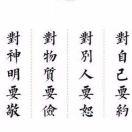 對自己要約
對別人要恕
對物質要儉
對神明要敬